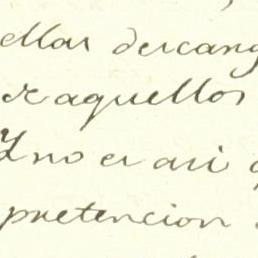 ellas descans
de aquellos
Y no es asi q
pretencion